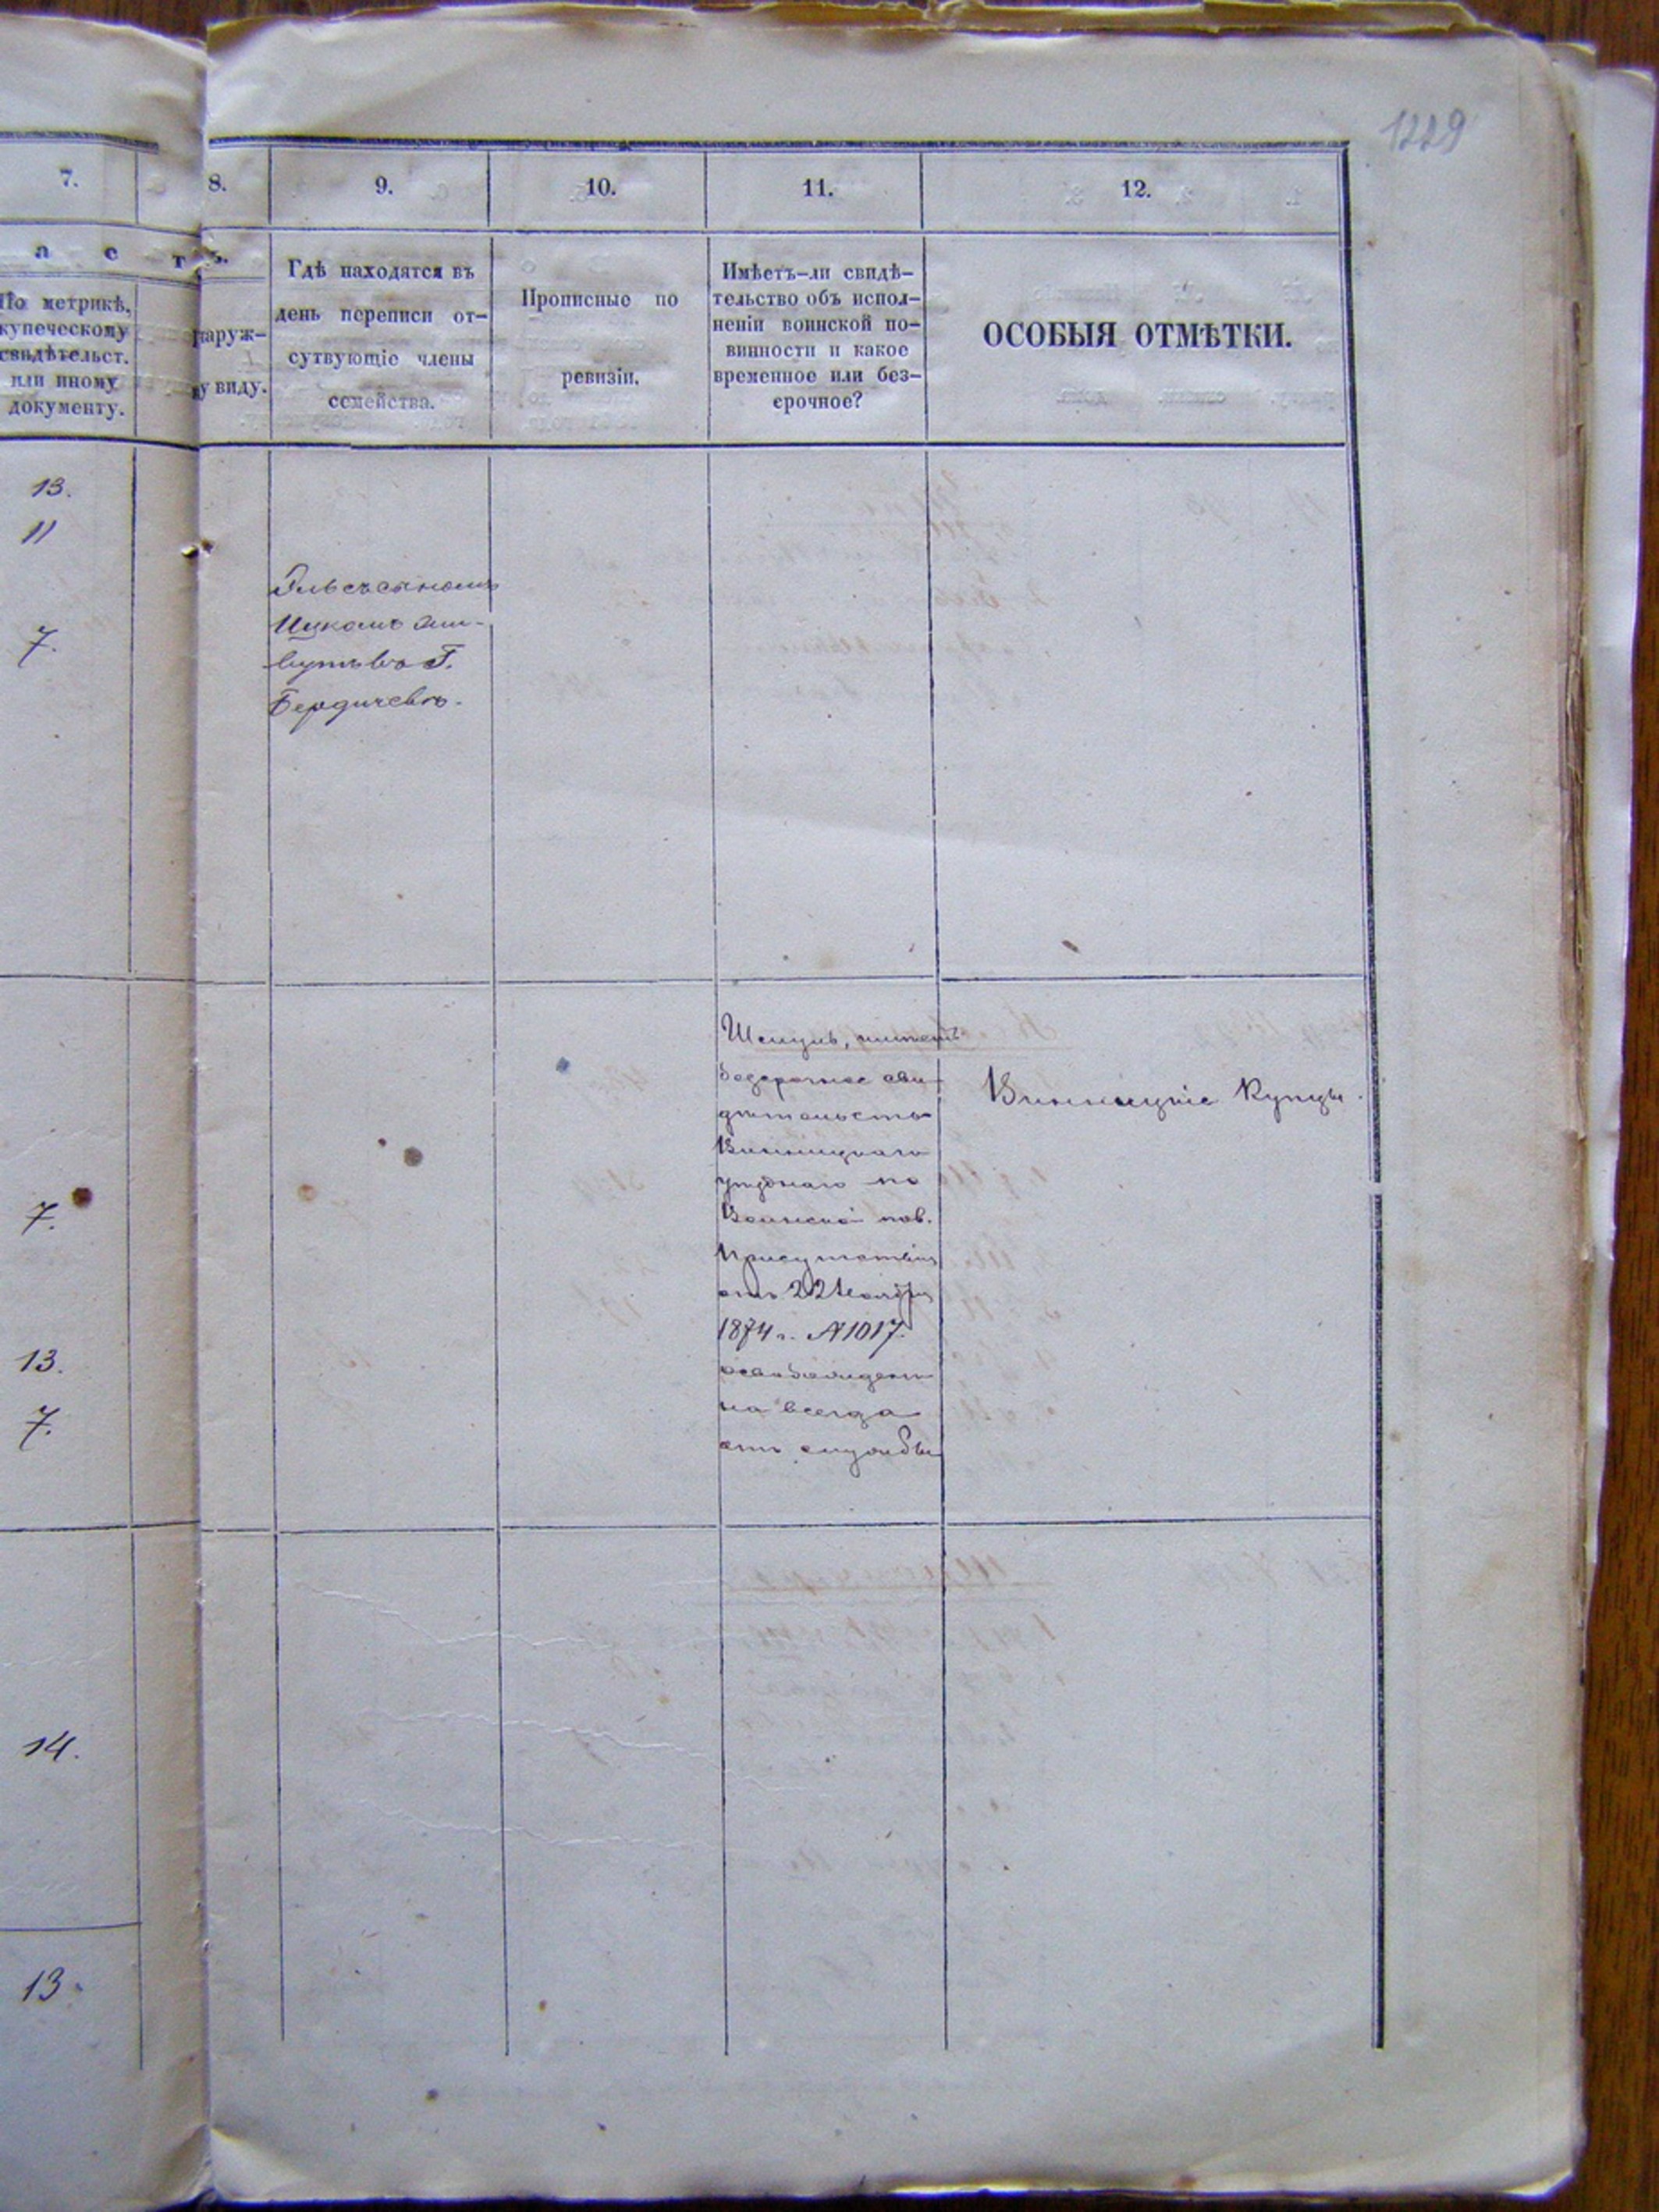 1229
7.
8.
9.
10.
11.
12.
а с т ь.
По метрикѣ,
купеческому
свидѣтельст.
или иному
документу.
наруж-
ну виду.
Гдѣ находятся въ
день переписи от-
сутвующіе члены
семейства.
Прописные по
ревизіи.
Имѣетъ-ли свидѣ-
тельство объ испол-
неніи воинской по-
винности и какое
временное или без-
срочное?
ОСОБЫЯ ОТМѢТКИ.
13.
11
7.
съ сыномъ
Ицкомъ жи-
вутъ въ Г.
Бердичевѣ.
7.
13.
7.
Шмуль, имѣетъ
безсрочное сви-
дѣтельство
Винницкаго
уѣзднаго по
Воинской пов.
Присутствія
отъ 22 Ноября
1874 г. № 1017.
освобожденъ
на всегда
отъ службы
Винницкіе Купцы.
14.
13.